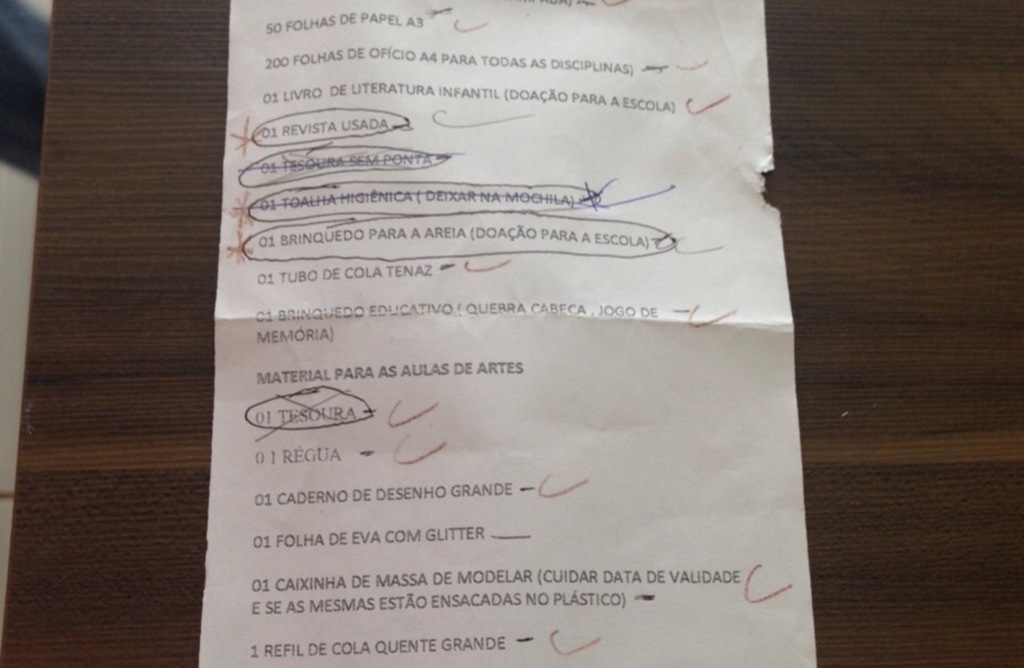 50 FOLHAS DE PAPEL A3
200 FOLHAS DE OFÍCIO A4 PARA TODAS AS DISCIPLINAS)
01 LIVRO DE LITERATURA INFANTIL (DOAÇÃO PARA A ESCOLA)
01 REVISTA USADA
01 TESOURA SEM PONTA
01 TOALHA HIGIÊNICA ( DEIXAR NA MOCHILA)
01 BRINQUEDO PARA A AREIA (DOAÇÃO PARA A ESCOLA)
01 TUBO DE COLA TENAZ
01 BRINQUEDO EDUCATIVO ( QUEBRA CABEÇA , JOGO DE
MEMÓRIA)
MATERIAL PARA AS AULAS DE ARTES
01 TESOURA
0 1 RÉGUA
01 CADERNO DE DESENHO GRANDE
01 FOLHA DE EVA COM GLITTER
01 CAIXINHA DE MASSA DE MODELAR (CUIDAR DATA DE VALIDADE
E SE AS MESMAS ESTÃO ENSACADAS NO PLÁSTICO)
1 REFIL DE COLA QUENTE GRANDE